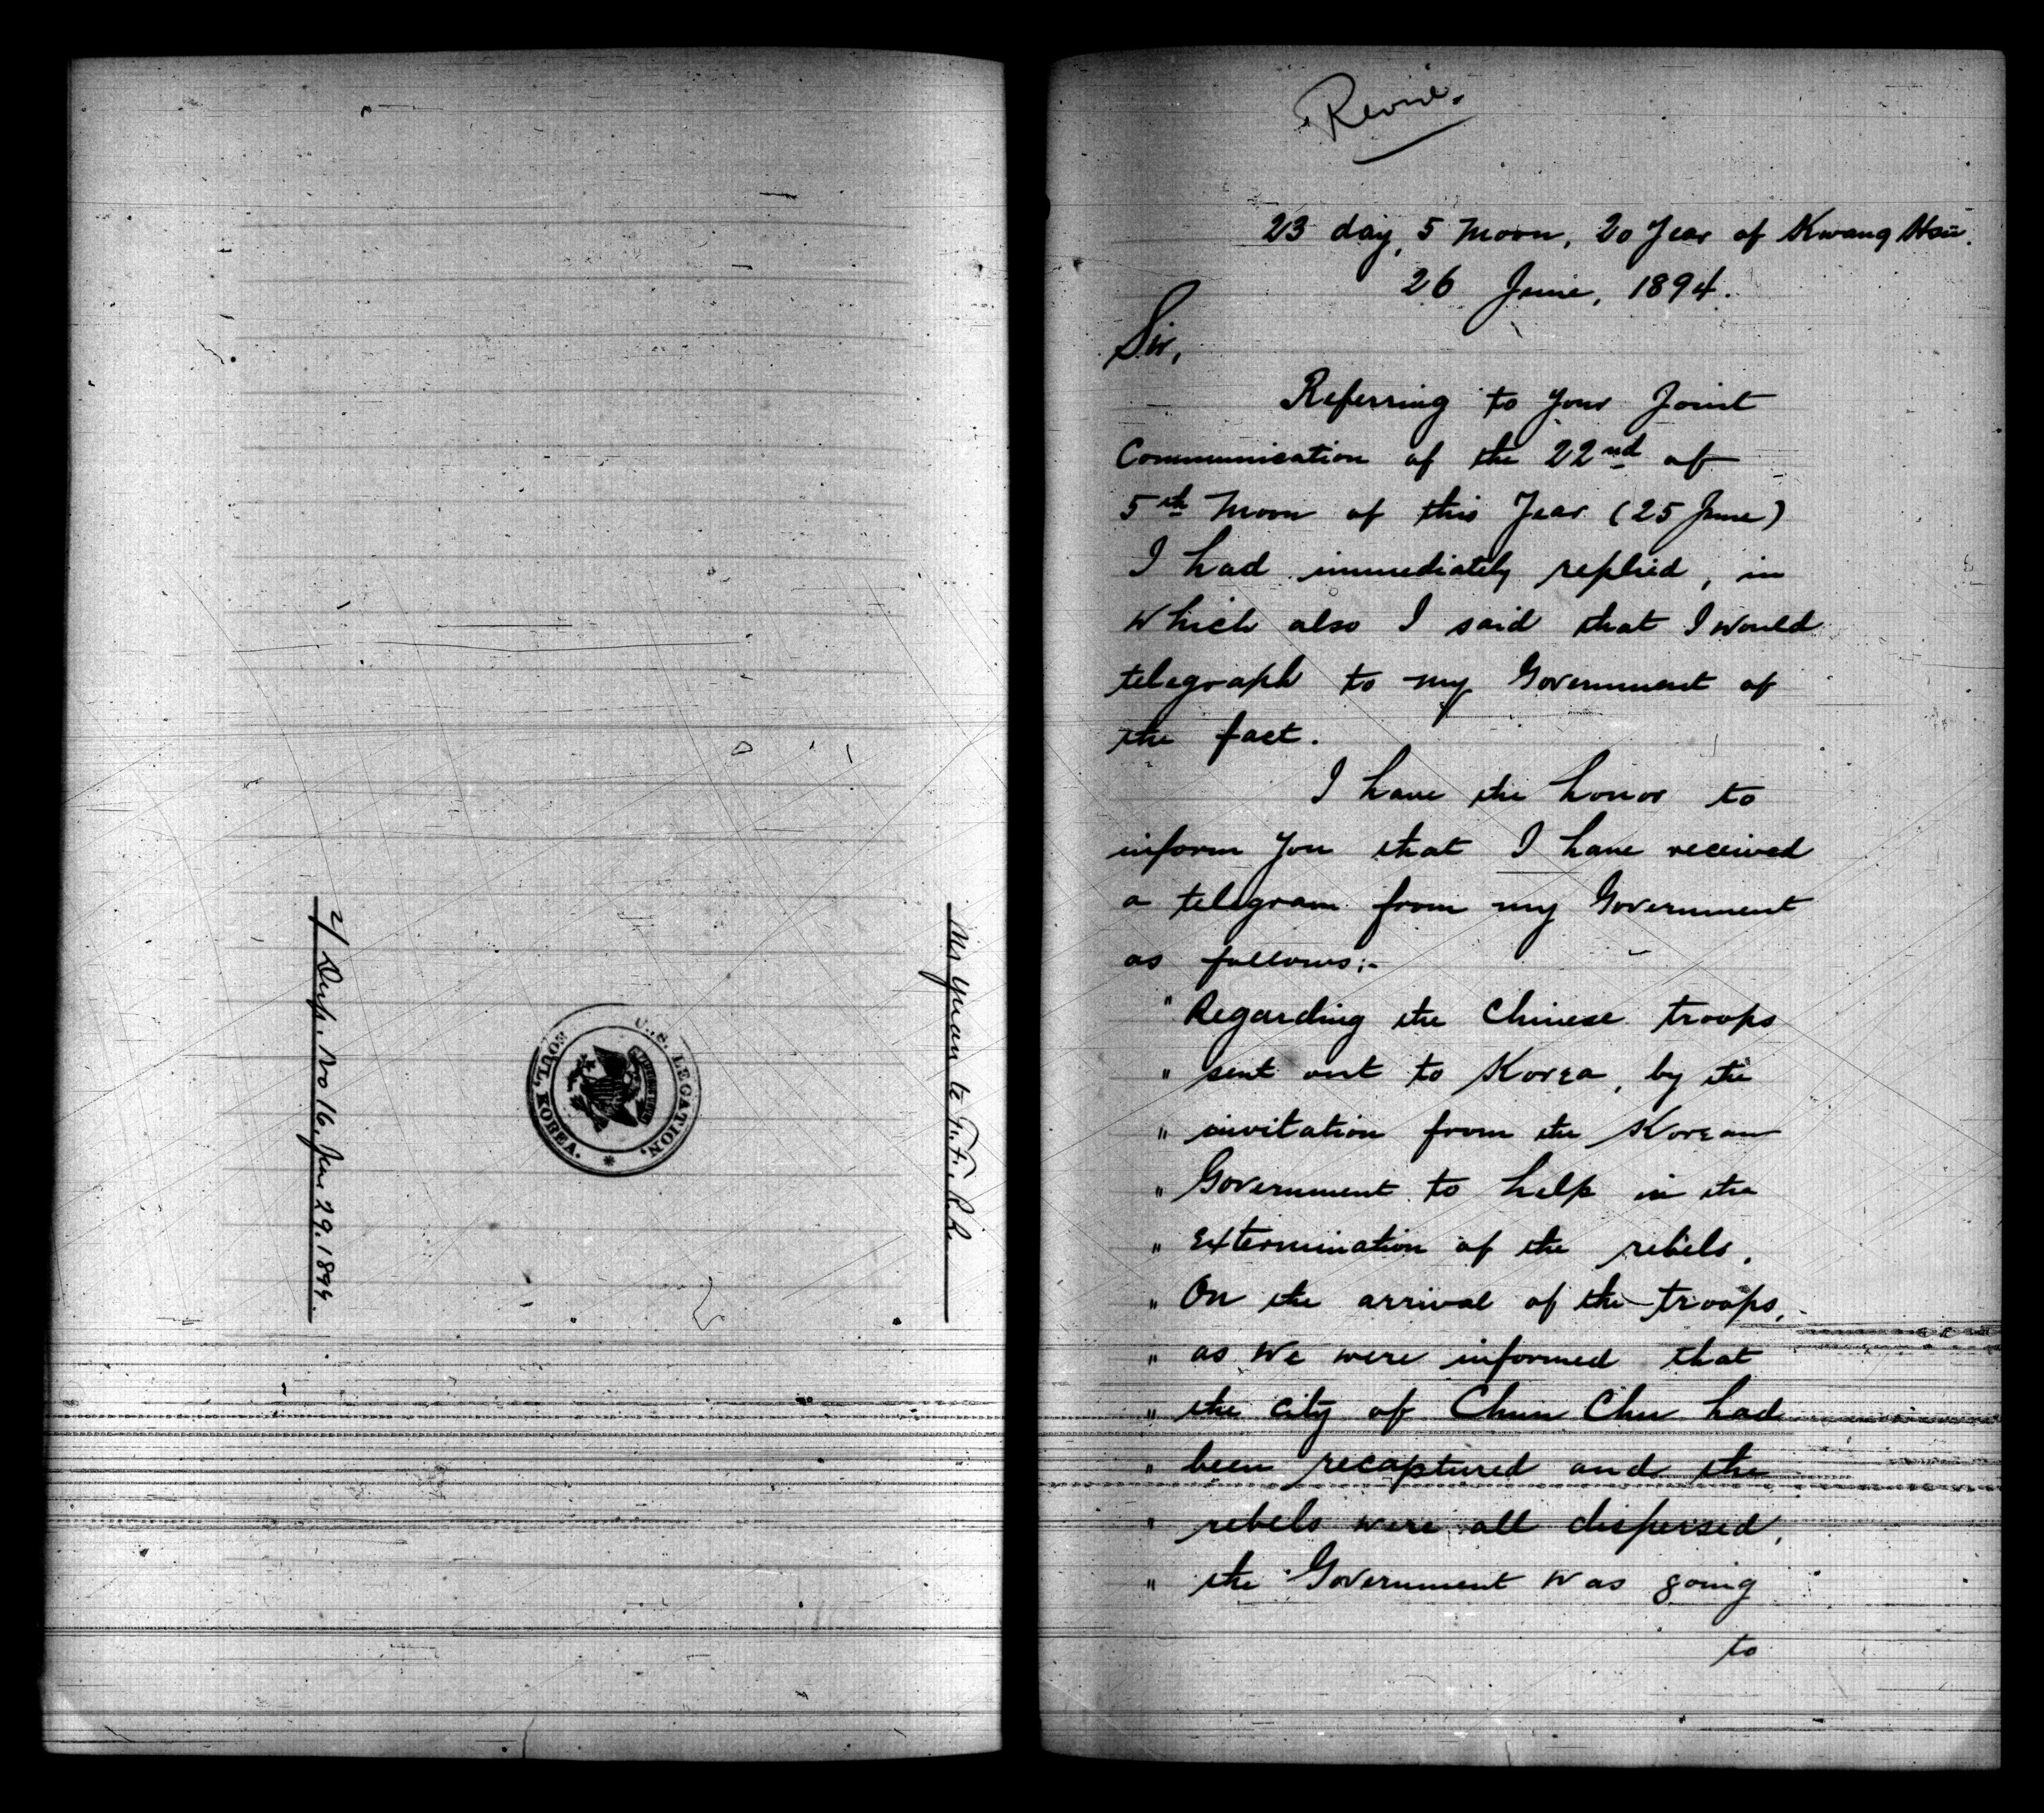 Mr Yuan to F. F. R. R.
U.S. LEGATION,
SOUL, KOREA.
2/ Desp. No 16, June 29. 1894.
Revise.
23 day, 5 Moon, 20 Year of Kwang Hsü.
26 June, 1894.
Sir,
Referring to your Joint
Communication of the 22nd of
5th Moon of this Year (25 June)
I had immediately replied, in
which also I said that I would
telegraph to my Government of
the fact.
I have the honor to
inform you that I have received
a telegram from my Government
as follows:-
" Regarding the Chinese troops
" sent out to Korea, by the
" invitation from the Korean
" Government to help in the
" extermination of the rebels.
" On the arrival of the troops,
" as we were informed that
" the city of Chun Chu had
" been recaptured and the
" rebels were all dispersed,
" the Government was going
to